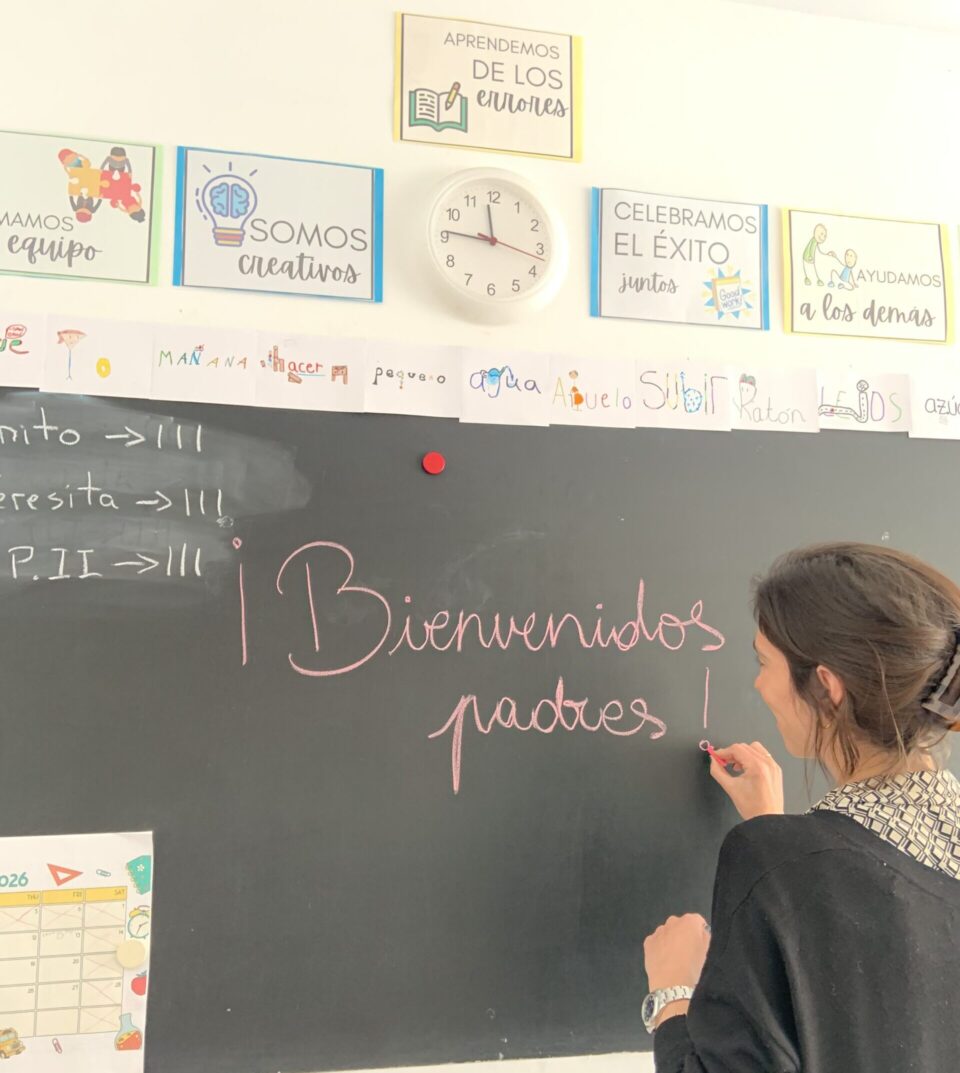 APRENDEMOS
DE LOS
errores
equipo
SOMOS
creativos
12
1
2
3
4
5
6
7
8
9
10
11
CELEBRAMOS
EL ÉXITO
juntos
Good
work!
AYUDAMOS
a los demás
MAÑANA
hacer
pequeño
agua
Abuelo
Subir
Ratón
LEJOS
→ III
→ III
P.II → III
¡Bienvenidos
padres!
THU FRI SAT